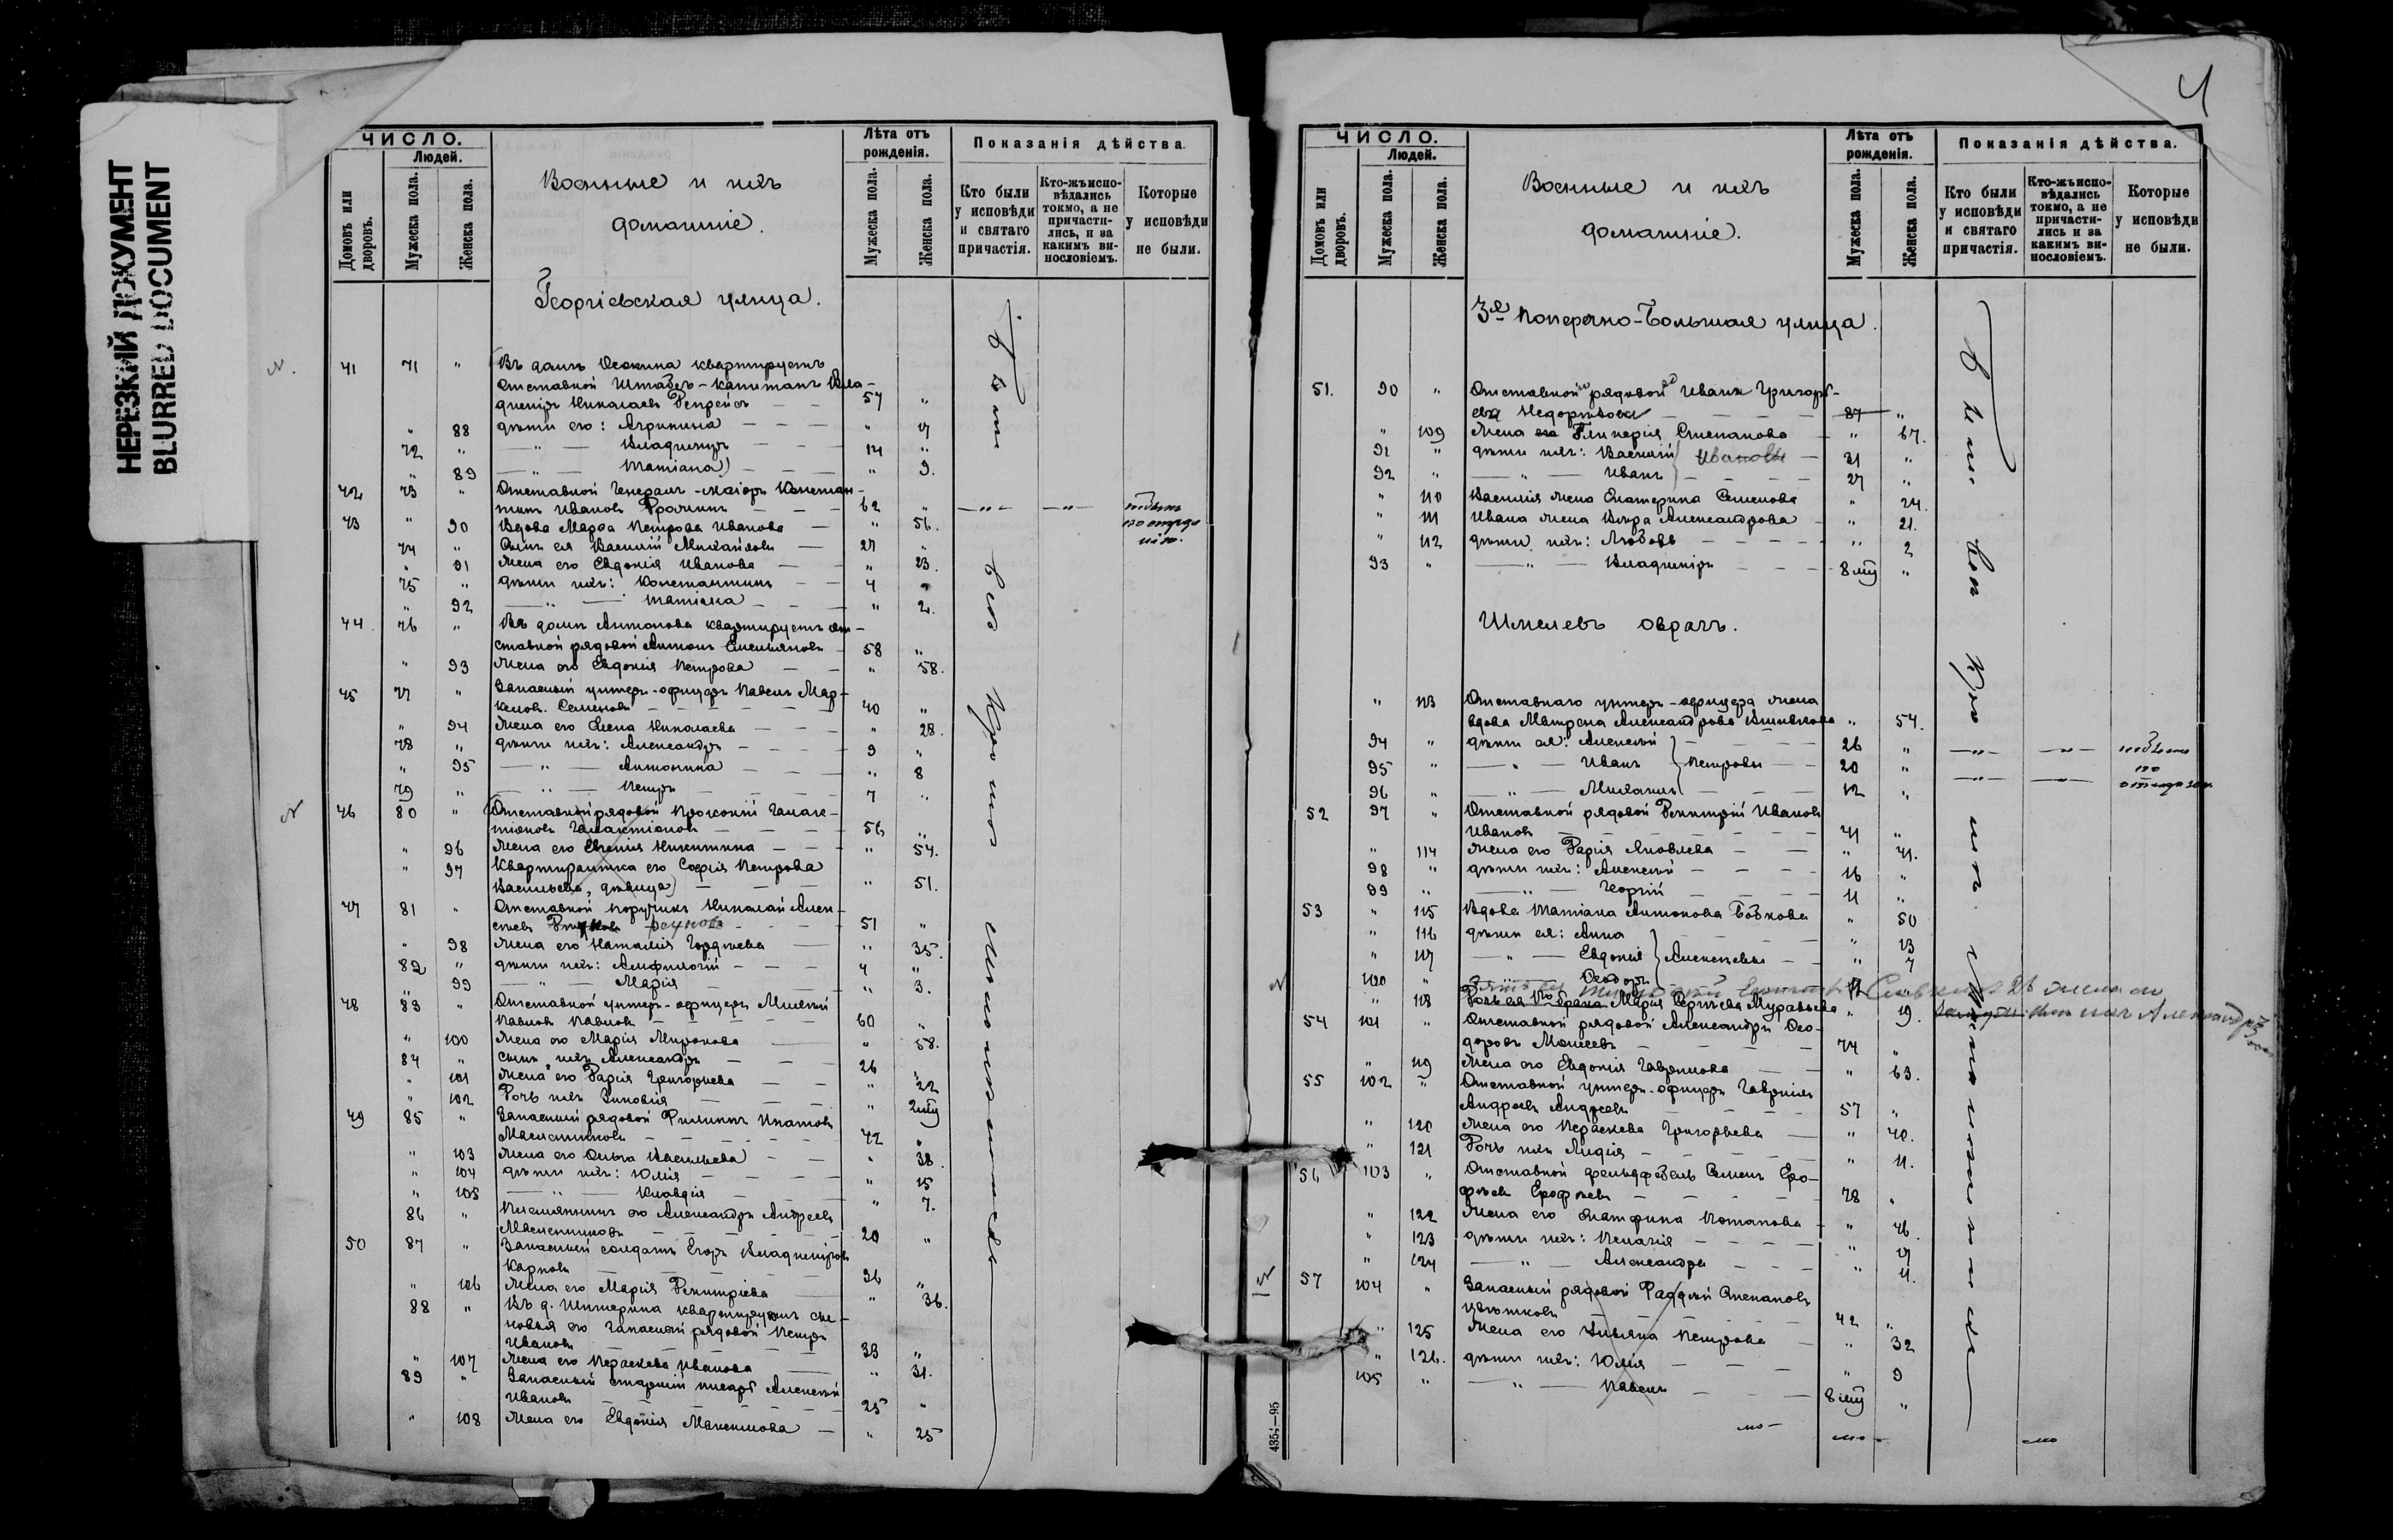 НЕРЕЗКИЙ ДОКУМЕНТ
BLURRED DOCUMENT
ЧИСЛО.
Людей.
Домовъ или дворовъ.
Мужеска пола.
Женска пола.
Военные и ихъ
домашніе.
Лѣта отъ рожденія.
Мужеска пола.
Женска пола.
Показанія дѣйства.
Кто были у исповѣди и святаго причастія.
Кто-жъ исповѣдались токмо, а не причастились, и за какимъ винословіемъ.
Которые у исповѣди не были.
Георгіевская улица.
41 71 " Въ домѣ Осокина квартируетъ
отставной Штабсъ-капитанъ Вла-
диміръ Николаевъ 57 "
" 88 дѣти его: Агрипина " 17
72 " — " — Владиміръ 14 "
" 89 — " — Татіана " 9.
42 73 " Отставной Генералъ-маіоръ Констан-
тинъ Ивановъ Фролкинъ 62 " — " — — " —
43 " 90 Вдова Марѳа Петрова Иванова " 56.
74 " Сынъ ея Василій Михайловъ 27 "
" 91 Жена его Евдокія Иванова " 23.
75 " дѣти ихъ: Константинъ 4 "
" 92 — " — Татіана " 2.
44 76 " Въ домѣ Антонова квартируетъ от-
ставной рядовой Антонъ Емельяновъ 58 "
" 93 Жена его Евдокія Петрова " 58.
45 77 " Запасный унтеръ-офицеръ Павелъ Мар-
келов. Семеновъ 40 "
" 94 Жена его Елена Николаева " 28.
78 " дѣти ихъ: Александръ 9 "
" 95 — " — Антонина " 8
79 " — " — Петръ 7 "
46 80 " Отставной рядовой Прокопій Галак-
тіоновъ Галактіоновъ 56 "
" 96 Жена его Евгенія Никитина " 54.
" 97 Квартирантка его Софія Петрова
Васильева, дѣвица " 51.
47 81 " Отставной поручикъ Николай Алек-
сѣевъ 51 "
" 98 Жена его Наталія Гордѣева " 35.
82 " дѣти ихъ: Амфилогій 4 "
" 99 — " — Марія " 3.
48 83 " Отставной унтеръ-офицеръ
Павловъ Павловъ 60 "
" 100 Жена его Марія Миронова " 58.
84 " Сынъ ихъ Александръ 26 "
" 101 Жена его Дарія Григорьева " 22
" 102 Дочь ихъ Зиновія "
49 85 " Запасный рядовой Филиппъ Игнатовъ
Масленниковъ 42 "
" 103 Жена его Ольга Васильева " 38.
" 104 дѣти ихъ: Юлія " 15
" 105 — " — Клавдія " 7.
86 " Племянникъ его Александръ Андреевъ
Масленниковъ 20 "
50 87 " Запасный солдатъ Егоръ Владиміровъ
Карповъ 36 "
" 106 Жена его Марія Димитріева " 36.
88 " Въ д. Шитерина квартируютъ сы-
новья его запасный рядовой Петръ
Ивановъ 33 "
" 107 Жена его Параскева Иванова " 31.
89 " Запасный старшій писарь Алексѣй
Ивановъ 25 "
" 108 Жена его Евдокія Максимова " 25
4
ЧИСЛО.
Людей.
Домовъ или дворовъ.
Мужеска пола.
Женска пола.
Военные и ихъ
домашніе.
Лѣта отъ рожденія.
Мужеска пола.
Женска пола.
Показанія дѣйства.
Кто были у исповѣди и святаго причастія.
Кто-жъ исповѣдались токмо, а не причастились и за какимъ винословіемъ.
Которые у исповѣди не были.
3я Поперечно-Большая улица.
51. 90 " Отставной рядовой Иванъ Григорь-
евъ 87 "
" 109 Жена его Гликерія Степанова " 67.
91 " дѣти ихъ: Василій Ивановы 31 "
92 " — " — Иванъ 27 "
" 110 Василія жена Екатерина Семенова " 24.
" 111 Ивана жена Вѣра Александрова " 21.
" 112 дѣти ихъ: Любовь " 2
93 " — " — Владиміръ 8 "
Шмелевъ оврагъ.
" 113 Отставнаго унтеръ-офицера жена
вдова Матрена Александрова " 54.
94 " дѣти ея: Алексѣй 26 " — " — — " —
95 " — " — Иванъ Петровы 20 " — " — — " —
96 " — " — Михаилъ 12 "
52 97 " Отставной рядовой Димитрій Ивановъ
Ивановъ 41 "
" 114 Жена его Дарія Яковлева " 41.
98 " дѣти ихъ: Алексѣй 16 "
99 " — " — Георгій 11 "
53 " 115 Вдова Татіана Антонова Бобкова " 50
" 116 дѣти ея: Анна " 13
" 117 — " — Евдокія Алексѣевы " 7
100 " Ѳеодоръ
" 118 Марія Сергѣева Муравьева " 19.
54 101 " Отставной рядовой Александръ Ѳео-
доровъ Моисеевъ 74 "
" 119 Жена его Евдокія Гаврилова " 63.
55 102 " Отставной унтеръ-офицеръ Гавріилъ
Андреевъ Андреевъ 57 "
" 120 Жена его Параскева Григорьева " 40.
" 121 Дочь ихъ Лидія " 11.
56 103 " Отставной фельдфебель Семенъ Еро-
фѣевъ Ерофѣевъ 78 "
" 122 Жена его Екатерина Потапова " 46.
" 123 дѣти ихъ: Пелагія " 17
" 124 — " — Александра " 11.
57 104 " Запасный рядовой Фаддей Степановъ
Цвѣтковъ 42 "
" 125 Жена его Ульяна Петрова " 32
" 126. дѣти ихъ: Юлія " 9
105 " — " — Павелъ 8 "
4354—95